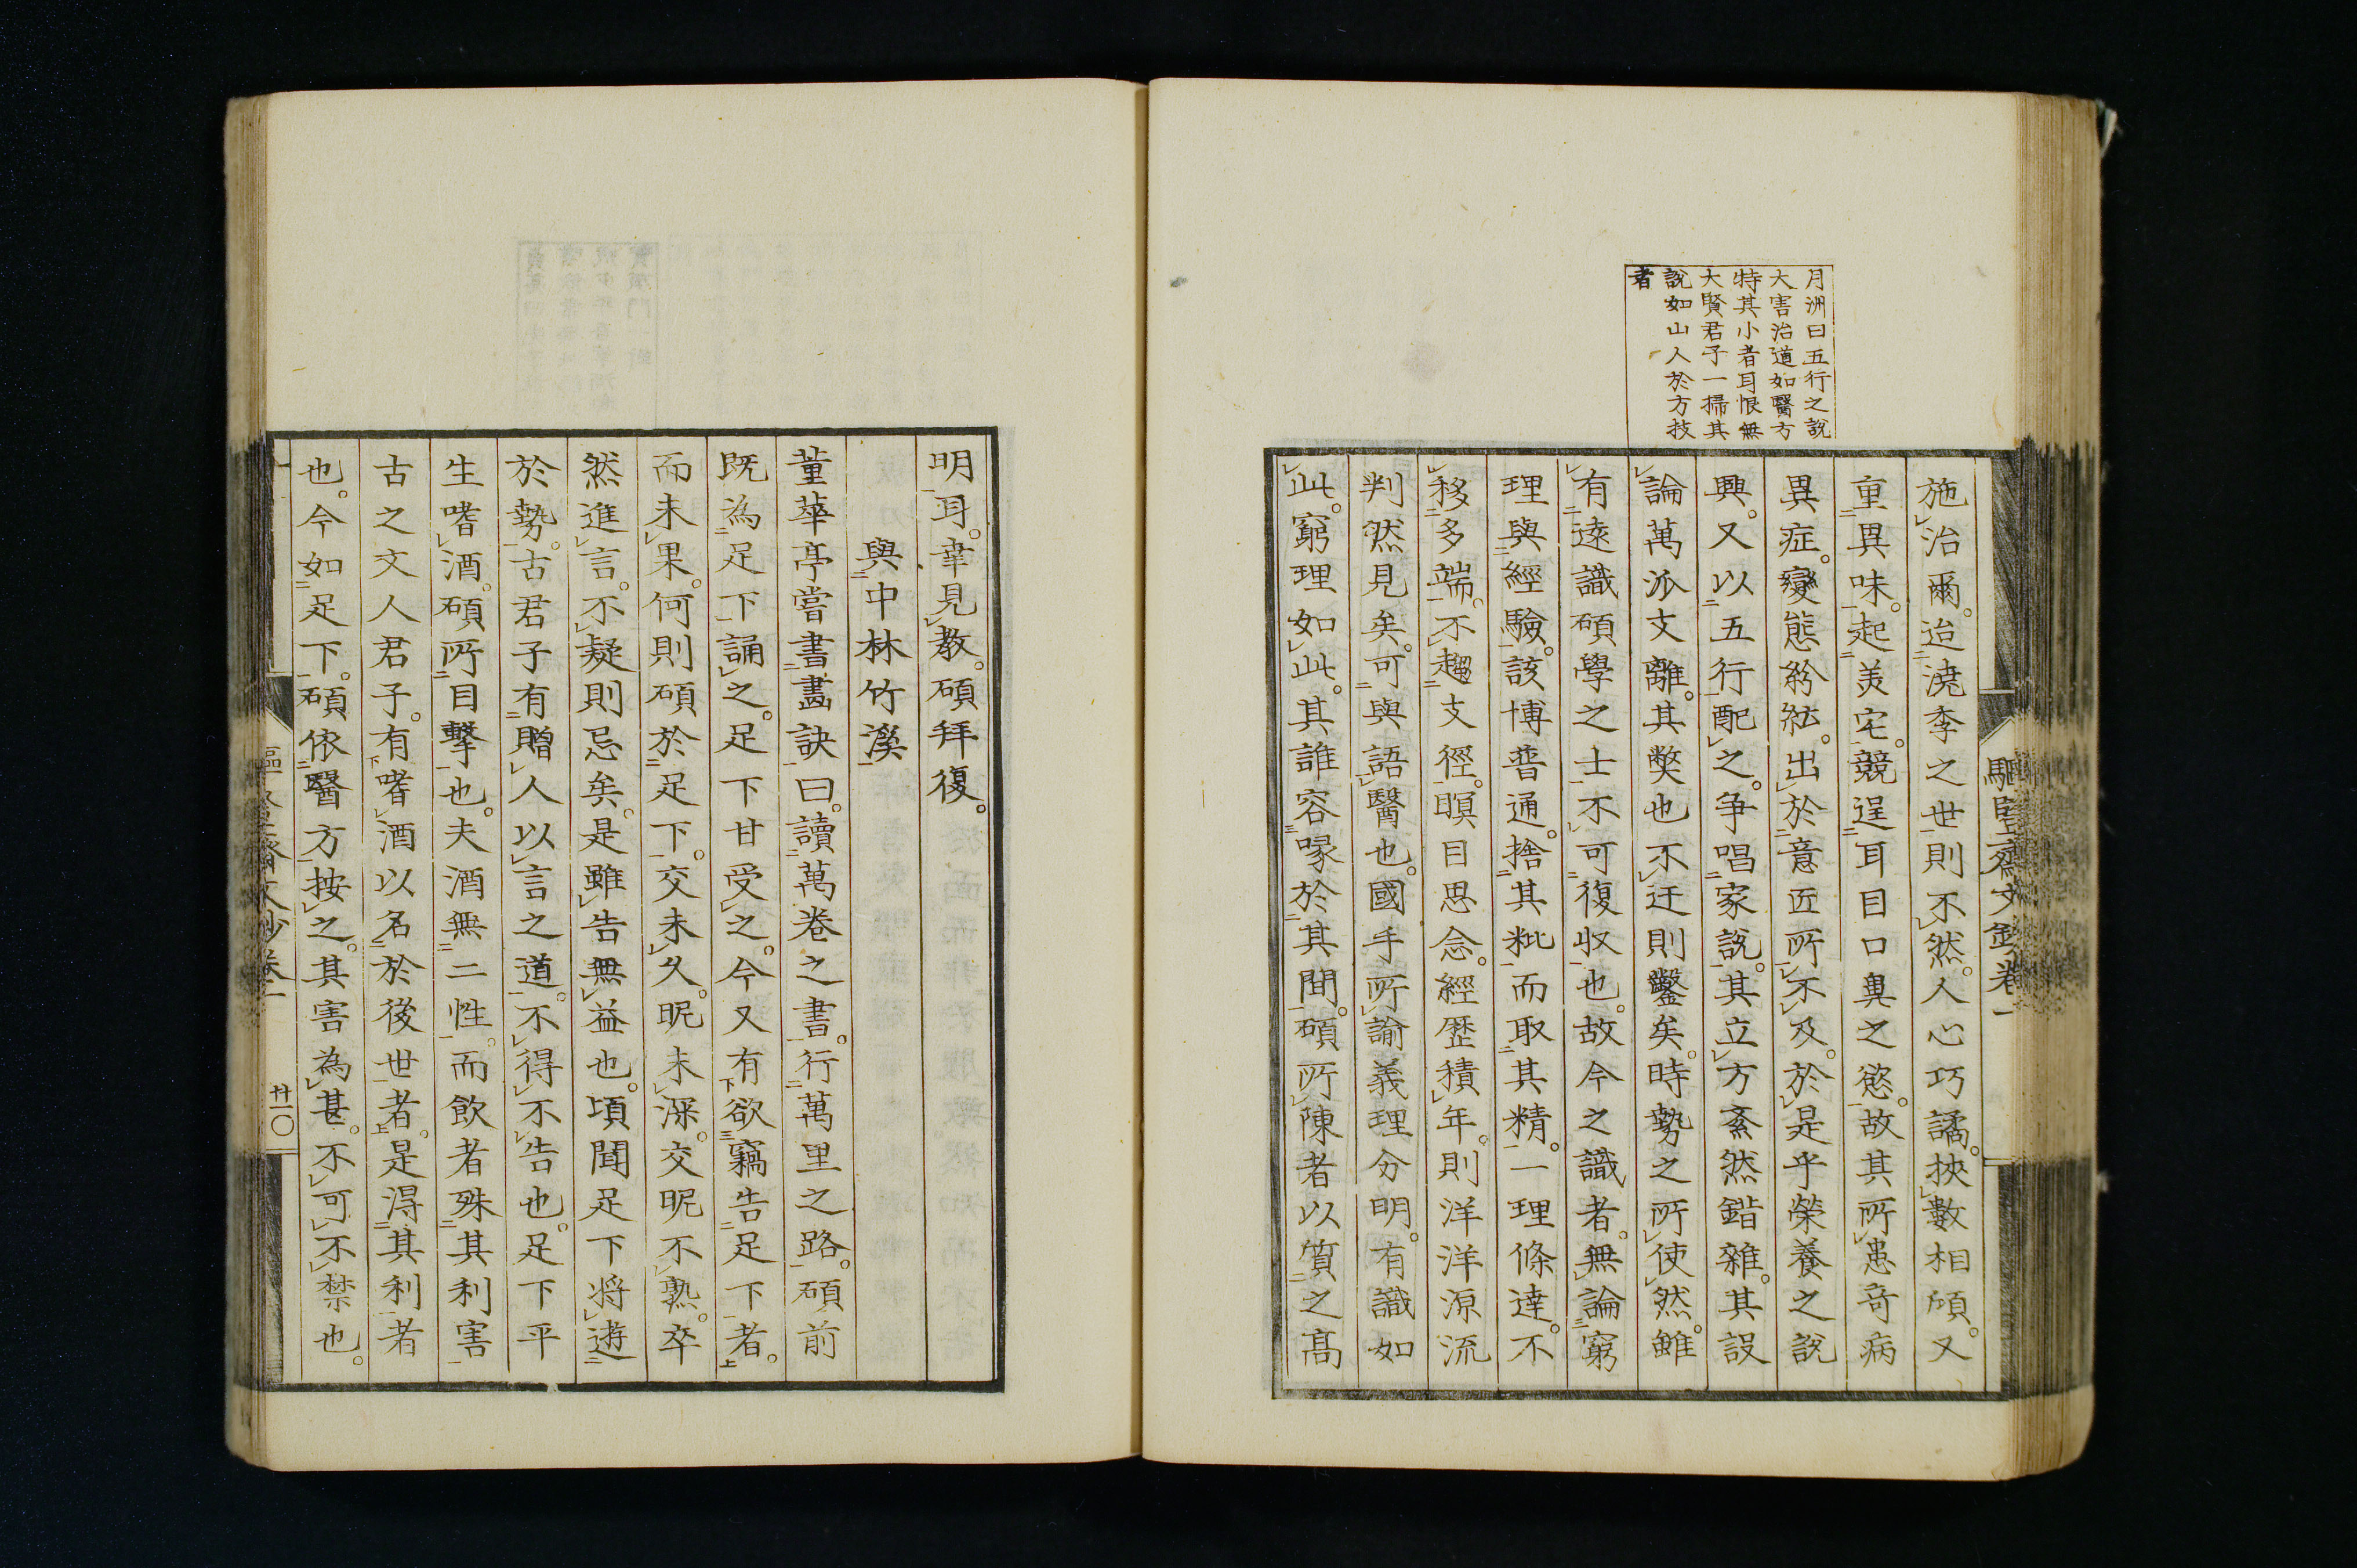 月洲曰五行之說
大害治道如醫方
特其小者耳恨無
大賢君子一掃其
說如山人於方技
者
施治爾。迨澆季之世則不然。人心巧譎。挾數相傾。又
重異味。起美宅。競逞耳目口鼻之慾。故其所患奇病
異症。變態紛紜。出於意匠所不及。於是乎榮養之說
興。又以五行配之。爭唱家說。其立方紊然錯雜。其設
論萬派支離。其弊也不迂則鑿矣。時勢之所使然。雖
有遠識碩學之士不可復収也。故今之識者。無論窮
理與經驗。該博普通。捨其粃而取其精。一理條達。不
移多端。不趨支徑。瞑目思念。經歷積年。則洋洋源流
判然見矣。可與語醫也。國手所諭義理分明。有識如
此。窮理如此。其誰容喙於其間。碩所陳者以質之高
驅豎齋文鈔卷一
明耳。幸見教。碩拜復。
與中林竹溪
董華亭嘗書畫訣曰。讀萬卷之書。行萬里之路。碩前
既為足下誦之。足下甘受之。今又有欲竊告足下者。
而未果。何則碩於足下。交未久。昵未深。交昵不熟。卒
然進言。不疑則忌矣。是雖告無益也。頃聞足下將遊
於勢。古君子有贈人以言之道。不得不告也。足下平
生嗜酒。碩所目擊也。夫酒無二性。而飲者殊其利害
古之文人君子。有嗜酒以名於後世者。是得其利者
也。今如足下。碩依醫方按之。其害為甚。不可不禁也。
廿一〇